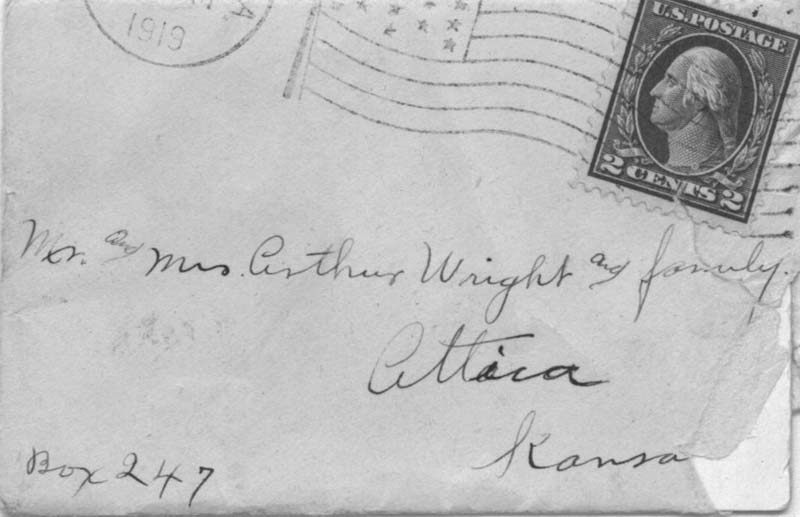 1919
U.S. POSTAGE
2 CENTS 2
Mr. and Mrs. Arthur Wright and family.
Attica
Kansa
Box 247